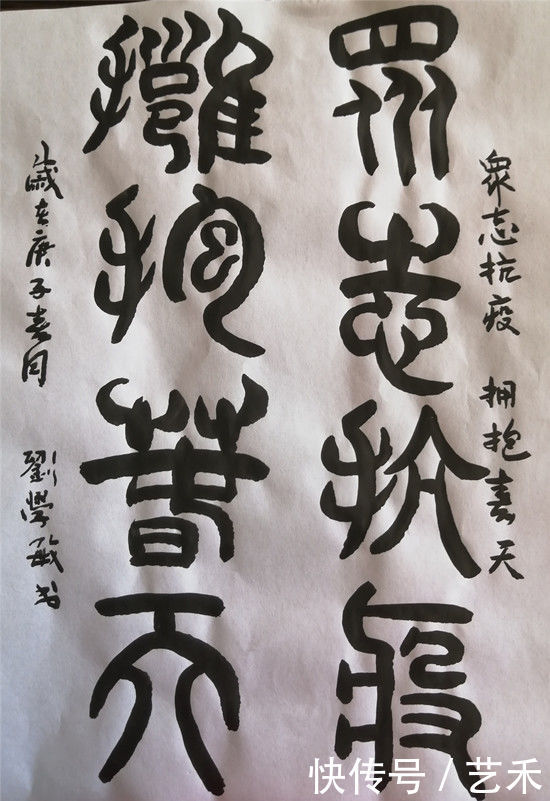 衆志抗疫 拥抱春天
眾志抗疫
擁抱春天
歲在庚子春月 劉學敏书
快传号 / 艺禾